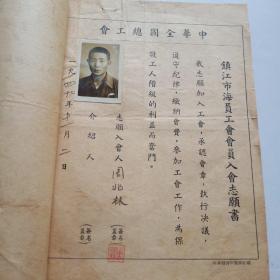 中華全國總工會
鎮江市海員工會會員入會志願書
我志願加入工會，承認會章，執行決議，
遵守紀律，繳納會費，參加工會工作，為保
護工人階級的利益而奮鬥。
志願入會人 周兆林 （簽名蓋章）
介紹人 （簽名蓋章）